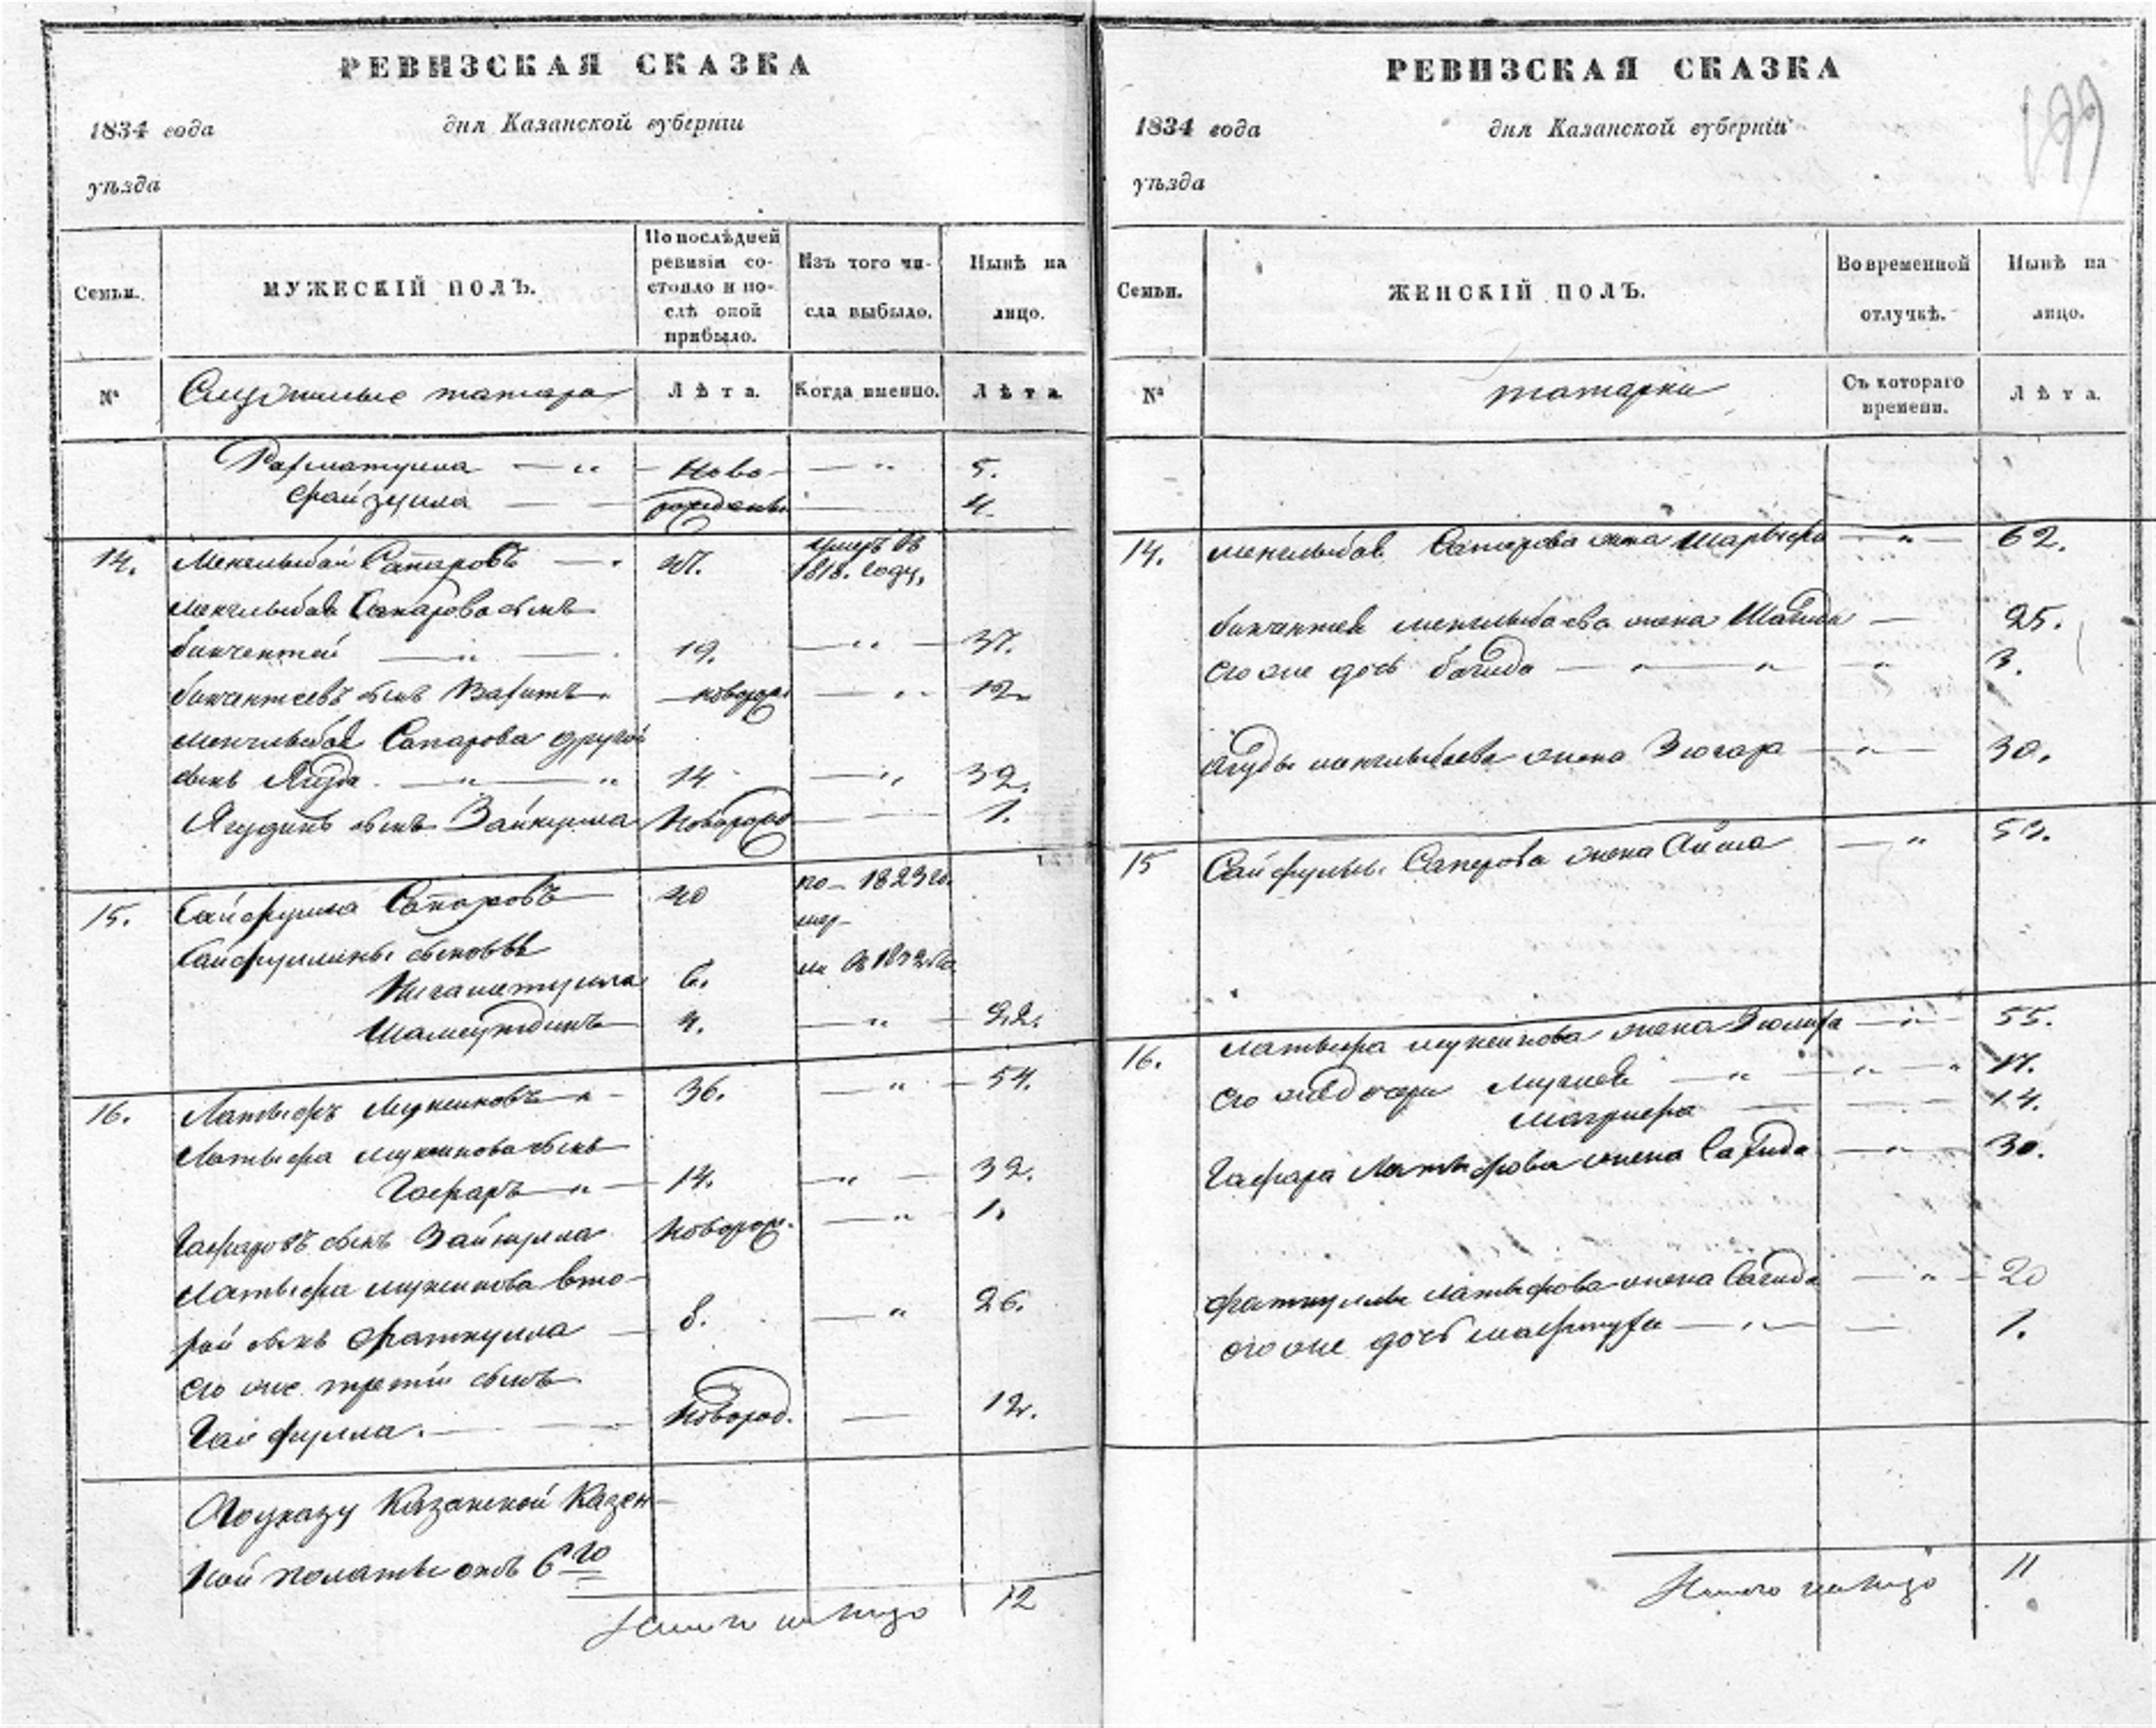 РЕВИЗСКАЯ СКАЗКА
1834 года
дня Казанской губерніи
уѣзда
Семьи.
МУЖЕСКІЙ ПОЛЪ.
По послѣдней ревизіи состояло и послѣ оной прибыло.
Изъ того числа выбыло.
Нынѣ на лицо.
№
Служилые татара
Лѣта.
Когда именно.
Лѣта.
Рахматулла — „ — Ново- — „ 5.
Файзулла — — рожденны — 4.
14. Менглыбай Сапаровъ — 47. умеръ въ
1818. году,
Менглыбая Сапарова сынъ
бикчентей — „ — 19. — „ — 37.
бикчантеевъ сынъ Вахитъ новорож — „ 12
Менглыбая Сапарова другой
сынъ Ягуда — „ — „ 14 — „ 32.
Ягудинъ сынъ Зайнулла Новорож — 1.
15. Сайфулла Сапаровъ — 40 по- 1823 го.
мер-
Сайфуллины сыновья
Нигаметулла 6. въ 1832 го.
Шамсутдинъ 4. — „ — 22.
16. Латыфъ Мукминовъ — „ - 36. — „ — 54.
Латыфа мукминова сынъ
Гафаръ — „ — 14. — „ — 32.
Гафаровъ сынъ Зайнулла Новорож. — „ 1.
Латыфа мукминова вто-
рой сынъ Фаткулла — 8. — „ 26.
его же третій сынъ
Гайфулла. — — Новород. — 12.
По указу Казанской Казен-
ной палаты отъ 6го
Итого на лицо 12
РЕВИЗСКАЯ СКАЗКА
1834 года
дня Казанской губерніи
уѣзда
Семьи.
ЖЕНСКІЙ ПОЛЪ.
Во временной отлучкѣ.
Нынѣ на лицо.
№
татарки
Съ котораго времени.
Лѣта.
14. менглыбая Сапарова жена — „ — 62.
бикчантея менглыбаева жена — 25.
его же дочь — „ — „ — „ 3.
Ягуды менглыбаева жена Зюгара — „ — 30.
15 Сайфуллы Сапарова жена — „ 53.
16. Латыфа мукминова жена — „ — 55.
его же дочери — „ — „ — „ 17.
— — 14.
Гафара Латыфова жена Сагида — „ — 30.
фаткуллы латыфова жена Сагида — „ — 20
его же дочь — „ — — 1.
Итого на лицо 11